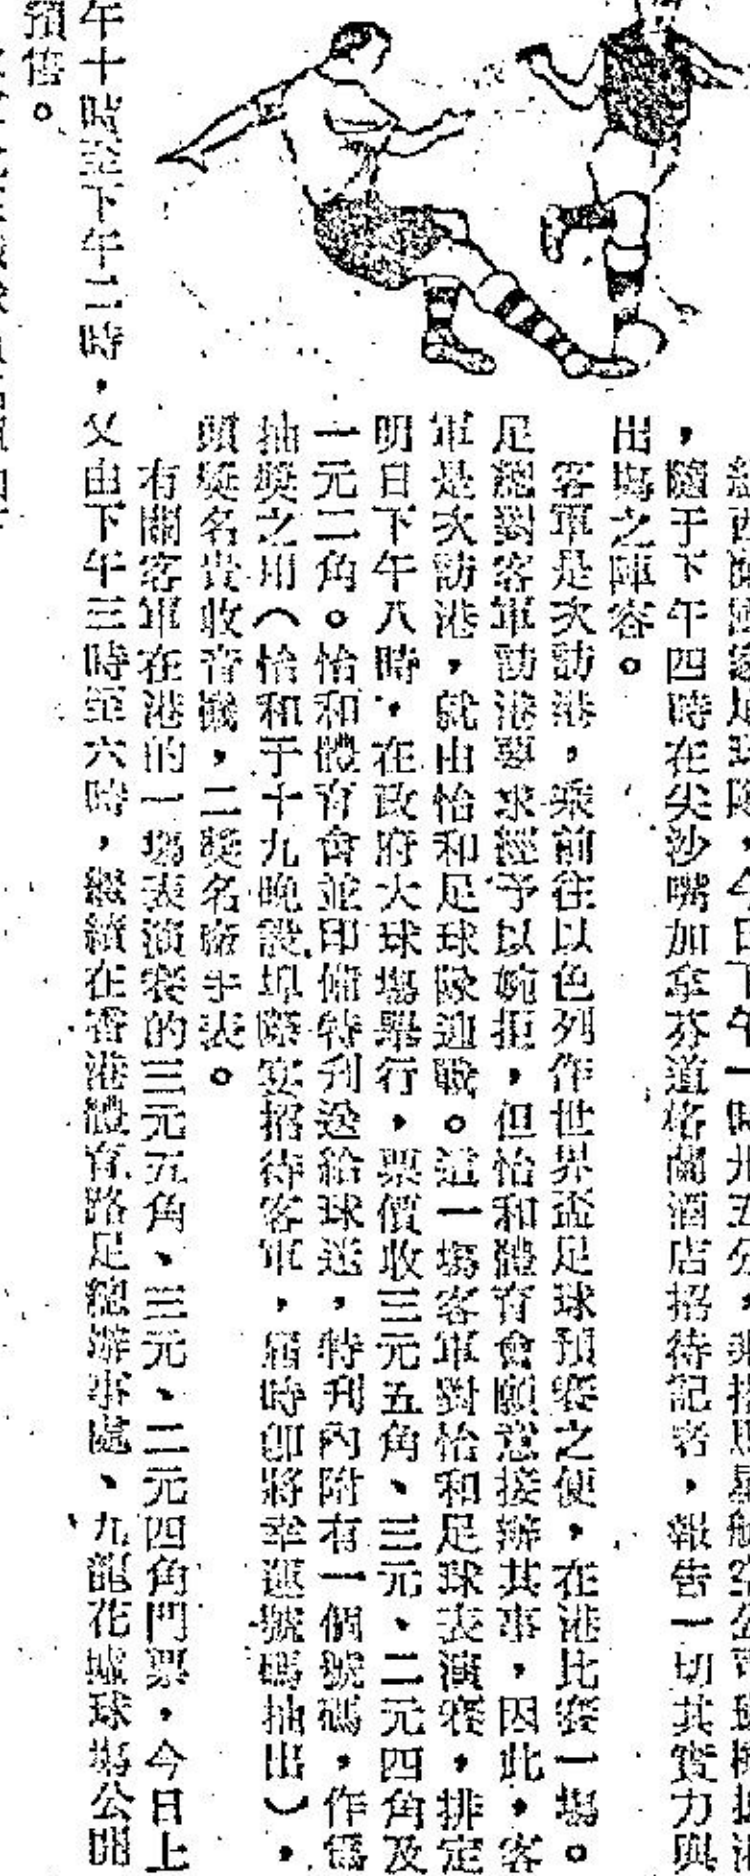 ，隨于下午四時在尖沙嘴加拿芬道格蘭酒店招待記者，報告一切其實力與
出塲之陣容。
客軍是次訪港，乘前往以色列作世界盃足球預賽之便，在港比賽一塲。
足總對客軍訪港要求經予以婉拒，但怡和體育會願意接辦其事，因此，客
軍是次訪港，就由怡和足球隊迎戰。這一塲客軍對怡和足球表演賽，排定
明日下午八時，在政府大球塲舉行，票價收三元五角、三元、二元四角及
一元二角。怡和體育會並印備特刊送給球迷，特刊內附有一個號碼，作爲
抽獎之用（怡和于十九晚設埠際宴招待客軍，屆時卽將幸運號碼抽出），
頭獎名貴收音機，二獎名廠手表。
有關客軍在港的一塲表演賽的三元五角、三元、二元四角門票，今日上
午十時至下午二時，又由下午三時至六時，繼續在香港體育路足總辦事處、九龍花墟球塲公開
預售。